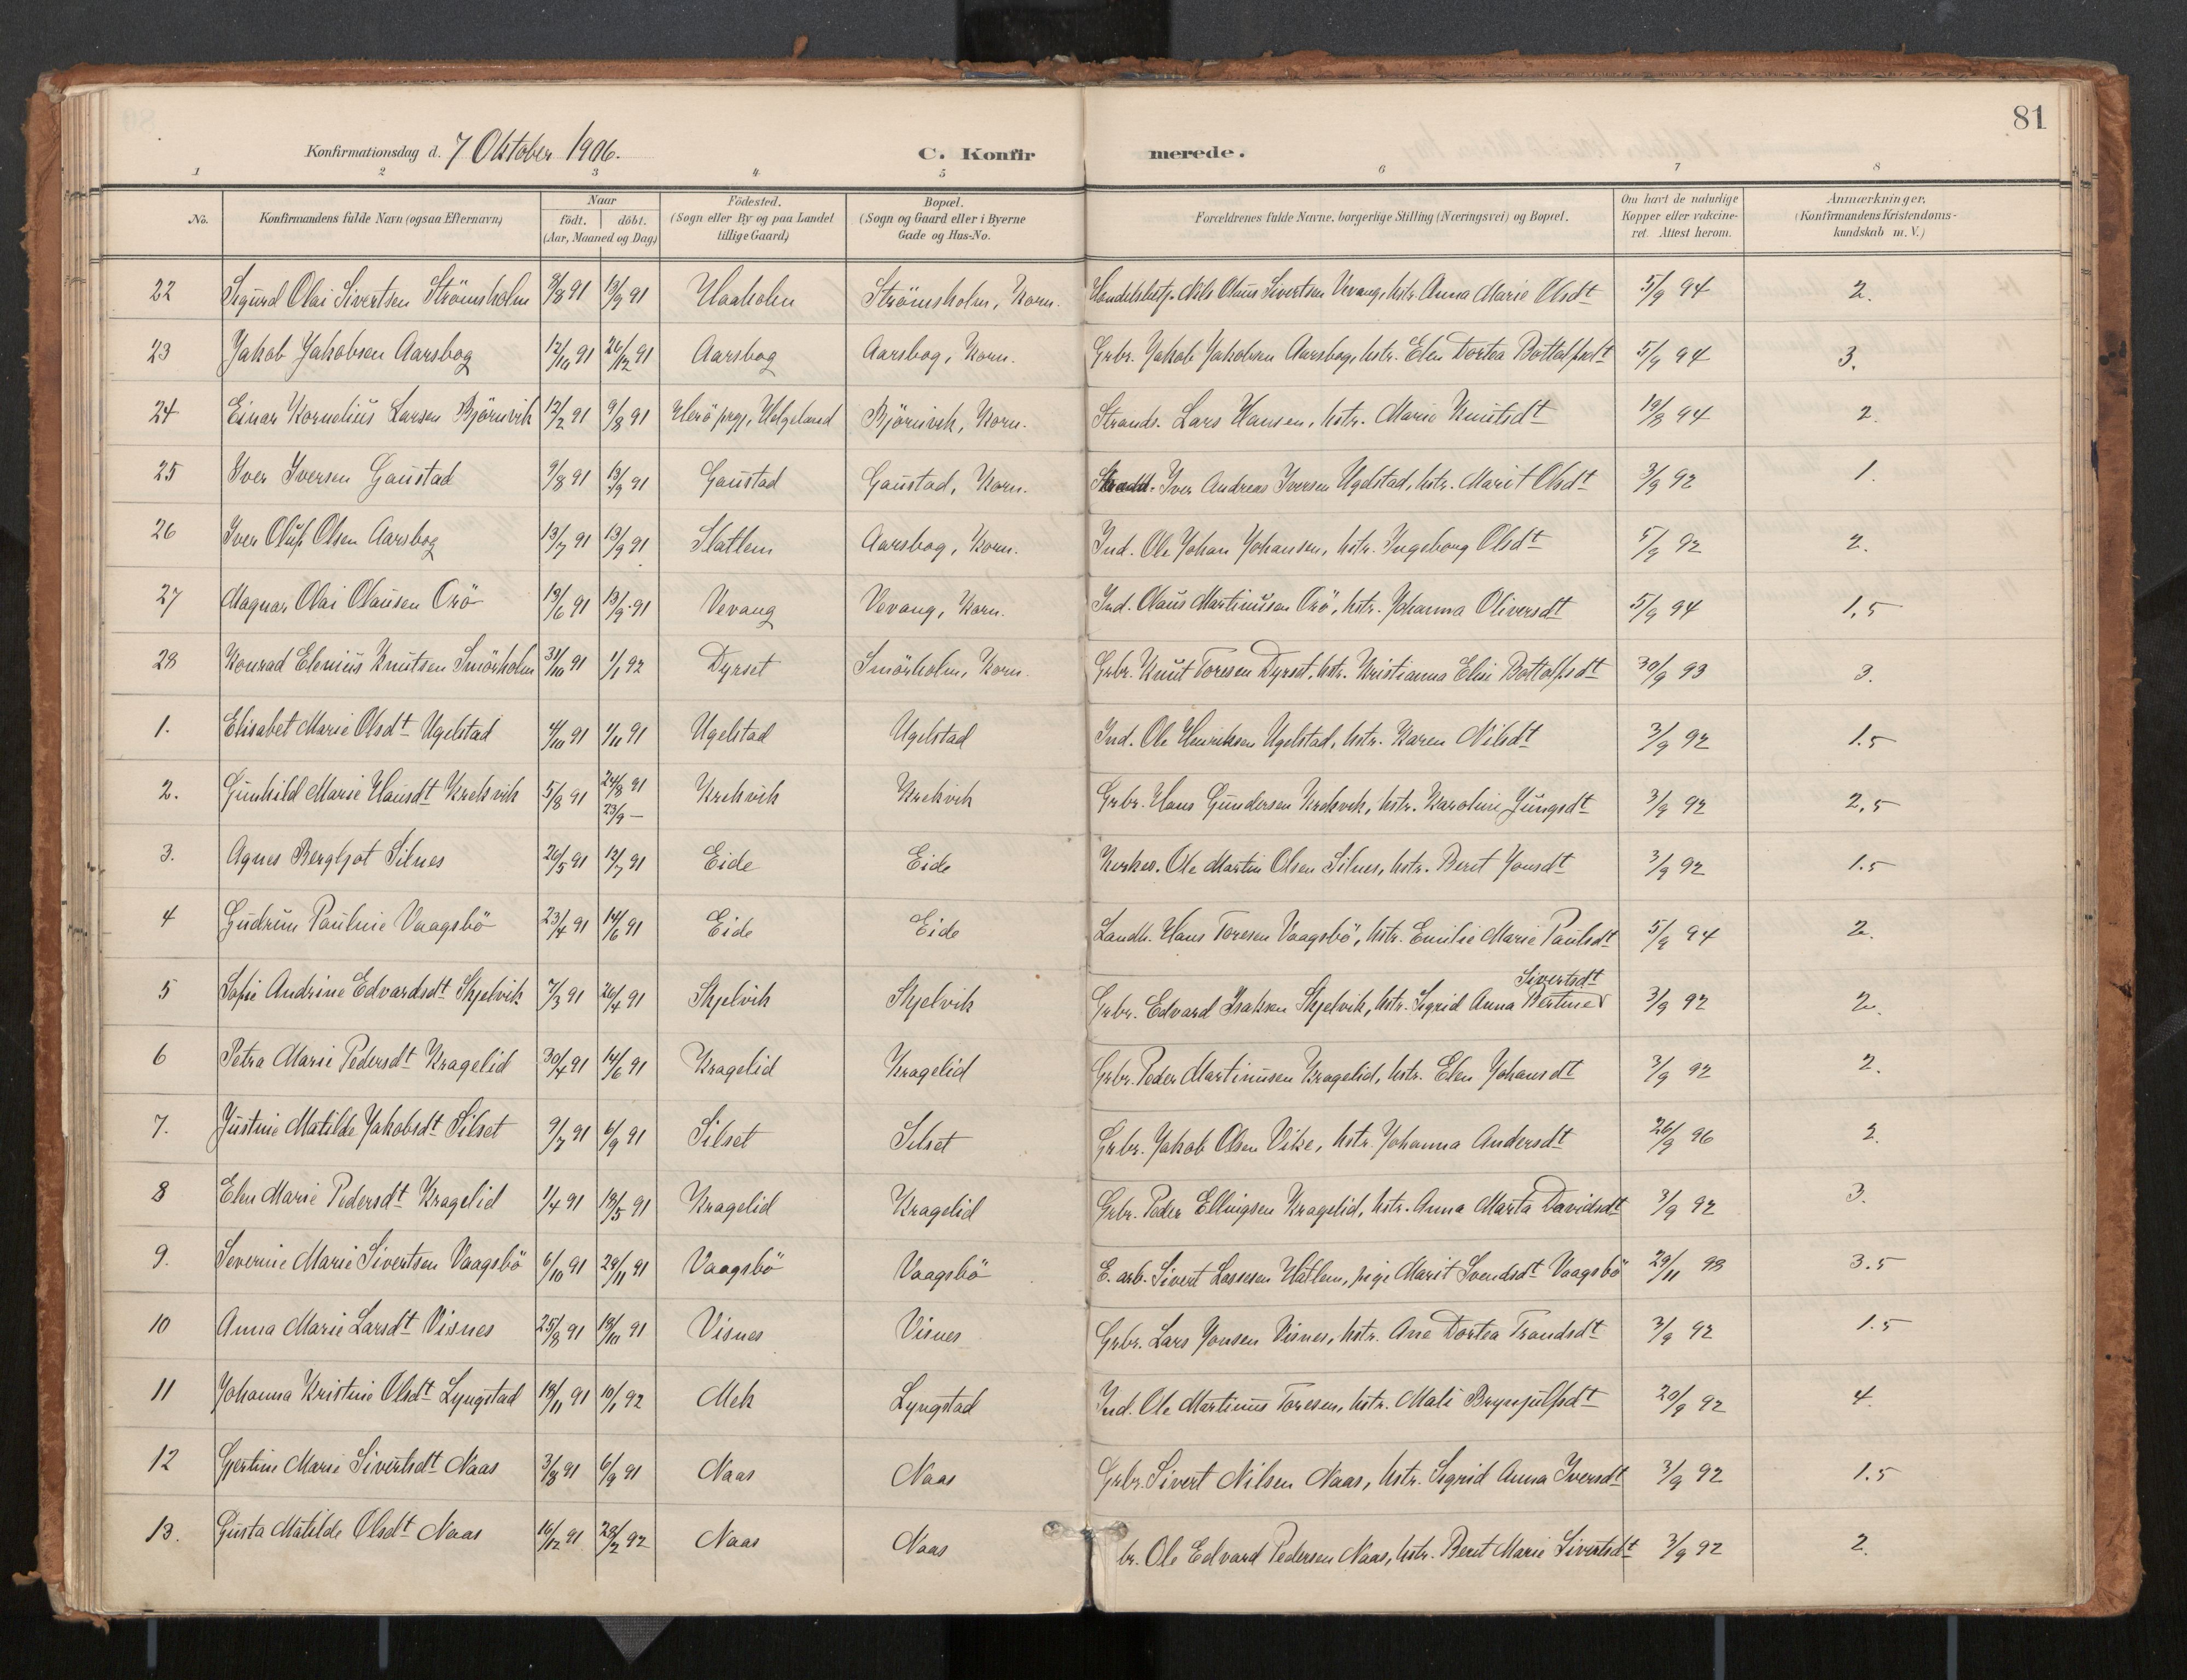 81
Konfirmationsdag d. 7 Oktober 1906. C. Konfirmerede.
1 2 3 4 5 6 7 8
No. Konfirmandens fulde Navn (ogsaa Efternavn) Naar födt. döbt. (Aar, Maaned og Dag) Födested. (Sogn eller By og paa Landet tillige Gaard) Bopæl. (Sogn og Gaard eller i Byerne Gade og Hus-No. Forældrenes fulde Navne, borgerlige Stilling (Næringsvei) og Bopæl. Om havt de naturlige Kopper eller vakcineret. Attest herom. Anmærkninger. (Konfirmandens Kristendomskundskab m. V.)
22 Sigurd Olai Sivertsen Strömsholm 8/8 91 13/9 91 Haaholm Strömsholm, Korn. Handelsbetj. Nils Olaus Sivertsen Vevang, hstr. Anna Marie Olsdt 5/9 94 2.
23 Jakob Jakobsen Aarsbog 12/10 91 26/12 91 Aarsbog Aarsbog, Korn. Grbr. Jakob Jakobsen Aarsbog, hstr. Elen Dortea Bottolfsdt 5/9 94 3.
24 Einar Kornelius Larsen Björnvik 12/2 91 9/8 91 Herö prgj, Helgeland Björnvik, Korn. Strands. Lars Hansen, hstr. Marie Knutsdt 19/8 94 2.
25 Iver Iversen Gaustad 9/8 91 13/9 91 Gaustad Gaustad, Korn. Iver Andreas Iversen Ugelstad, hstr. Marit Olsdt 3/9 92 1.
26 Iver Oluf Olsen Aarsbog 13/7 91 13/9 91 Slatlem Aarsbog, Korn. Ind. Ole Johan Johansen, hstr. Ingeborg Olsdt 5/9 92 2.
27 Magnar Olai Olausen Orö 19/6 91 13/9 91 Vevang Vevang, Korn. Ind. Olaus Martinussen Orö, hstr. Johanna Oliversdt 5/9 94 1,5
28 Konrad Elenius Knutsen Smörholm 31/10 91 1/1 92 Dyrset Smörholm, Korn. Grbr. Knut Toresen Dyrset, hstr. Kristianna Elise Bottolfsdt 30/9 93 3.
1. Elisabet Marie Olsdt Ugelstad 4/10 91 1/11 91 Ugelstad Ugelstad Ind. Ole Henriksen Ugelstad, hstr. Karen Nilsdt 3/9 92 1.5
2. Gunhild Marie Hansdt Krekvik 5/8 91 24/8 91 23/9 — Krekvik Krekvik Grbr. Hans Gundersen Krekvik, hstr. Karoline Jüngsdt 3/9 92 2,5
3. Agnes Bergljot Silnes 26/5 91 12/7 91 Eide Eide Kirkes. Ole Martin Olsen Silnes, hstr. Berit Jonsdt 3/9 92 1.5
4 Gudrun Pauline Vaagsbö 23/4 91 14/6 91 Eide Eide Landh. Hans Toresen Vaagsbö, hstr. Emilie Marie Paulsdt 5/9 94 2.
Sivertsdt
5 Sofie Andrine Edvardsdt Skjelvik 7/3 91 26/4 91 Skjelvik Skjelvik Grbr. Edvard Isaksen Skjelvik, hstr. Sigrid Anna Bertine 3/9 92 2.
6 Petra Marie Pedersdt Kragelid 30/4 91 14/6 91 Kragelid Kragelid Grbr. Peder Martinusen Kragelid, hstr. Elen Johansdt 3/9 92 2.
7. Justine Matilde Jakobsdt Silset 9/7 91 6/9 91 Silset Silset Grbr. Jakob Olsen Vike, hstr. Johanna Andersdt 26/9 96 2.
8 Elen Marie Pedersdt Kragelid 1/4 91 13/5 91 Kragelid Kragelid Grbr. Peder Ellingsen Kragelid, hstr. Anna Marta Davidsdt 3/9 92 3.
9. Severine Marie Sivertsen Vaagsbö 6/10 91 29/11 91 Vaagsbö Vaagsbö E. arb. Sivert Lassesen Hatlem, pige Marit Svendsdt Vaagsbö 29/11 93 3.5
10 Anna Marie Larsdt Visnes 25/8 91 18/10 91 Visnes Visnes Grbr. Lars Jonsen Visnes, hstr. Ane Dortea Trondsdt 3/9 92 1.5
11 Johanna Kristine Olsdt Lyngstad 18/11 91 10/1 92 Mek Lyngstad Ind. Ole Martinus Toresen, hstr. Mali Brynjulfsdt 20/9 92 4.
12 Gjertine Marie Sivertsdt Naas 3/8 91 6/9 91 Naas Naas Grbr. Sivert Nilsen Naas, hstr. Sigrid Anna Iversdt 3/9 92 1.5
13. Gusta Matilde Olsdt Naas 16/12 91 28/2 92 Naas Naas br. Ole Edvard Pedersen Naas, hstr. Berit Marie Sivertsdt 3/9 92 2.